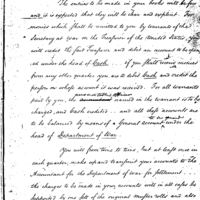 The entries to be made in your books will be few
and it is expected that they will be clear and explicit. For
monies which shall be remitted to you by warrants of the
Secretary at war on the Treasurer of the United States, you
will credit the said Treasurer and debit an account to be opened
under the head of Cash. if you shall receive monies
from any other quarter, you are to debit Cash and credit the
person on whose account it was received. For all warrants
paid by you, the named in the warrant is to be
charged, and Cash credited. and all such accounts are
to be balanced by means of a General account under the
head of Department of War.
You will from time to time, but at least once in
each quarter, make up and transmit your accounts to the
Accountant for the Department of war for settlement.
the charges to be made in your accounts will in all cases be
supported by one sett of the original muster rolls and also